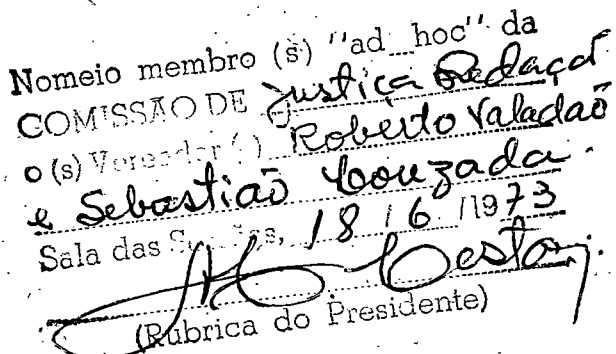 Nomeio membro (s) "ad hoc" da
COMISSÃO DE Justiça Redaçã
o (s) Vereador ( ) Roberto Valadaõ
e Sebastiaõ Louzada.
Sala das Sessões, 18 / 6 /1973
(Rubrica do Presidente)